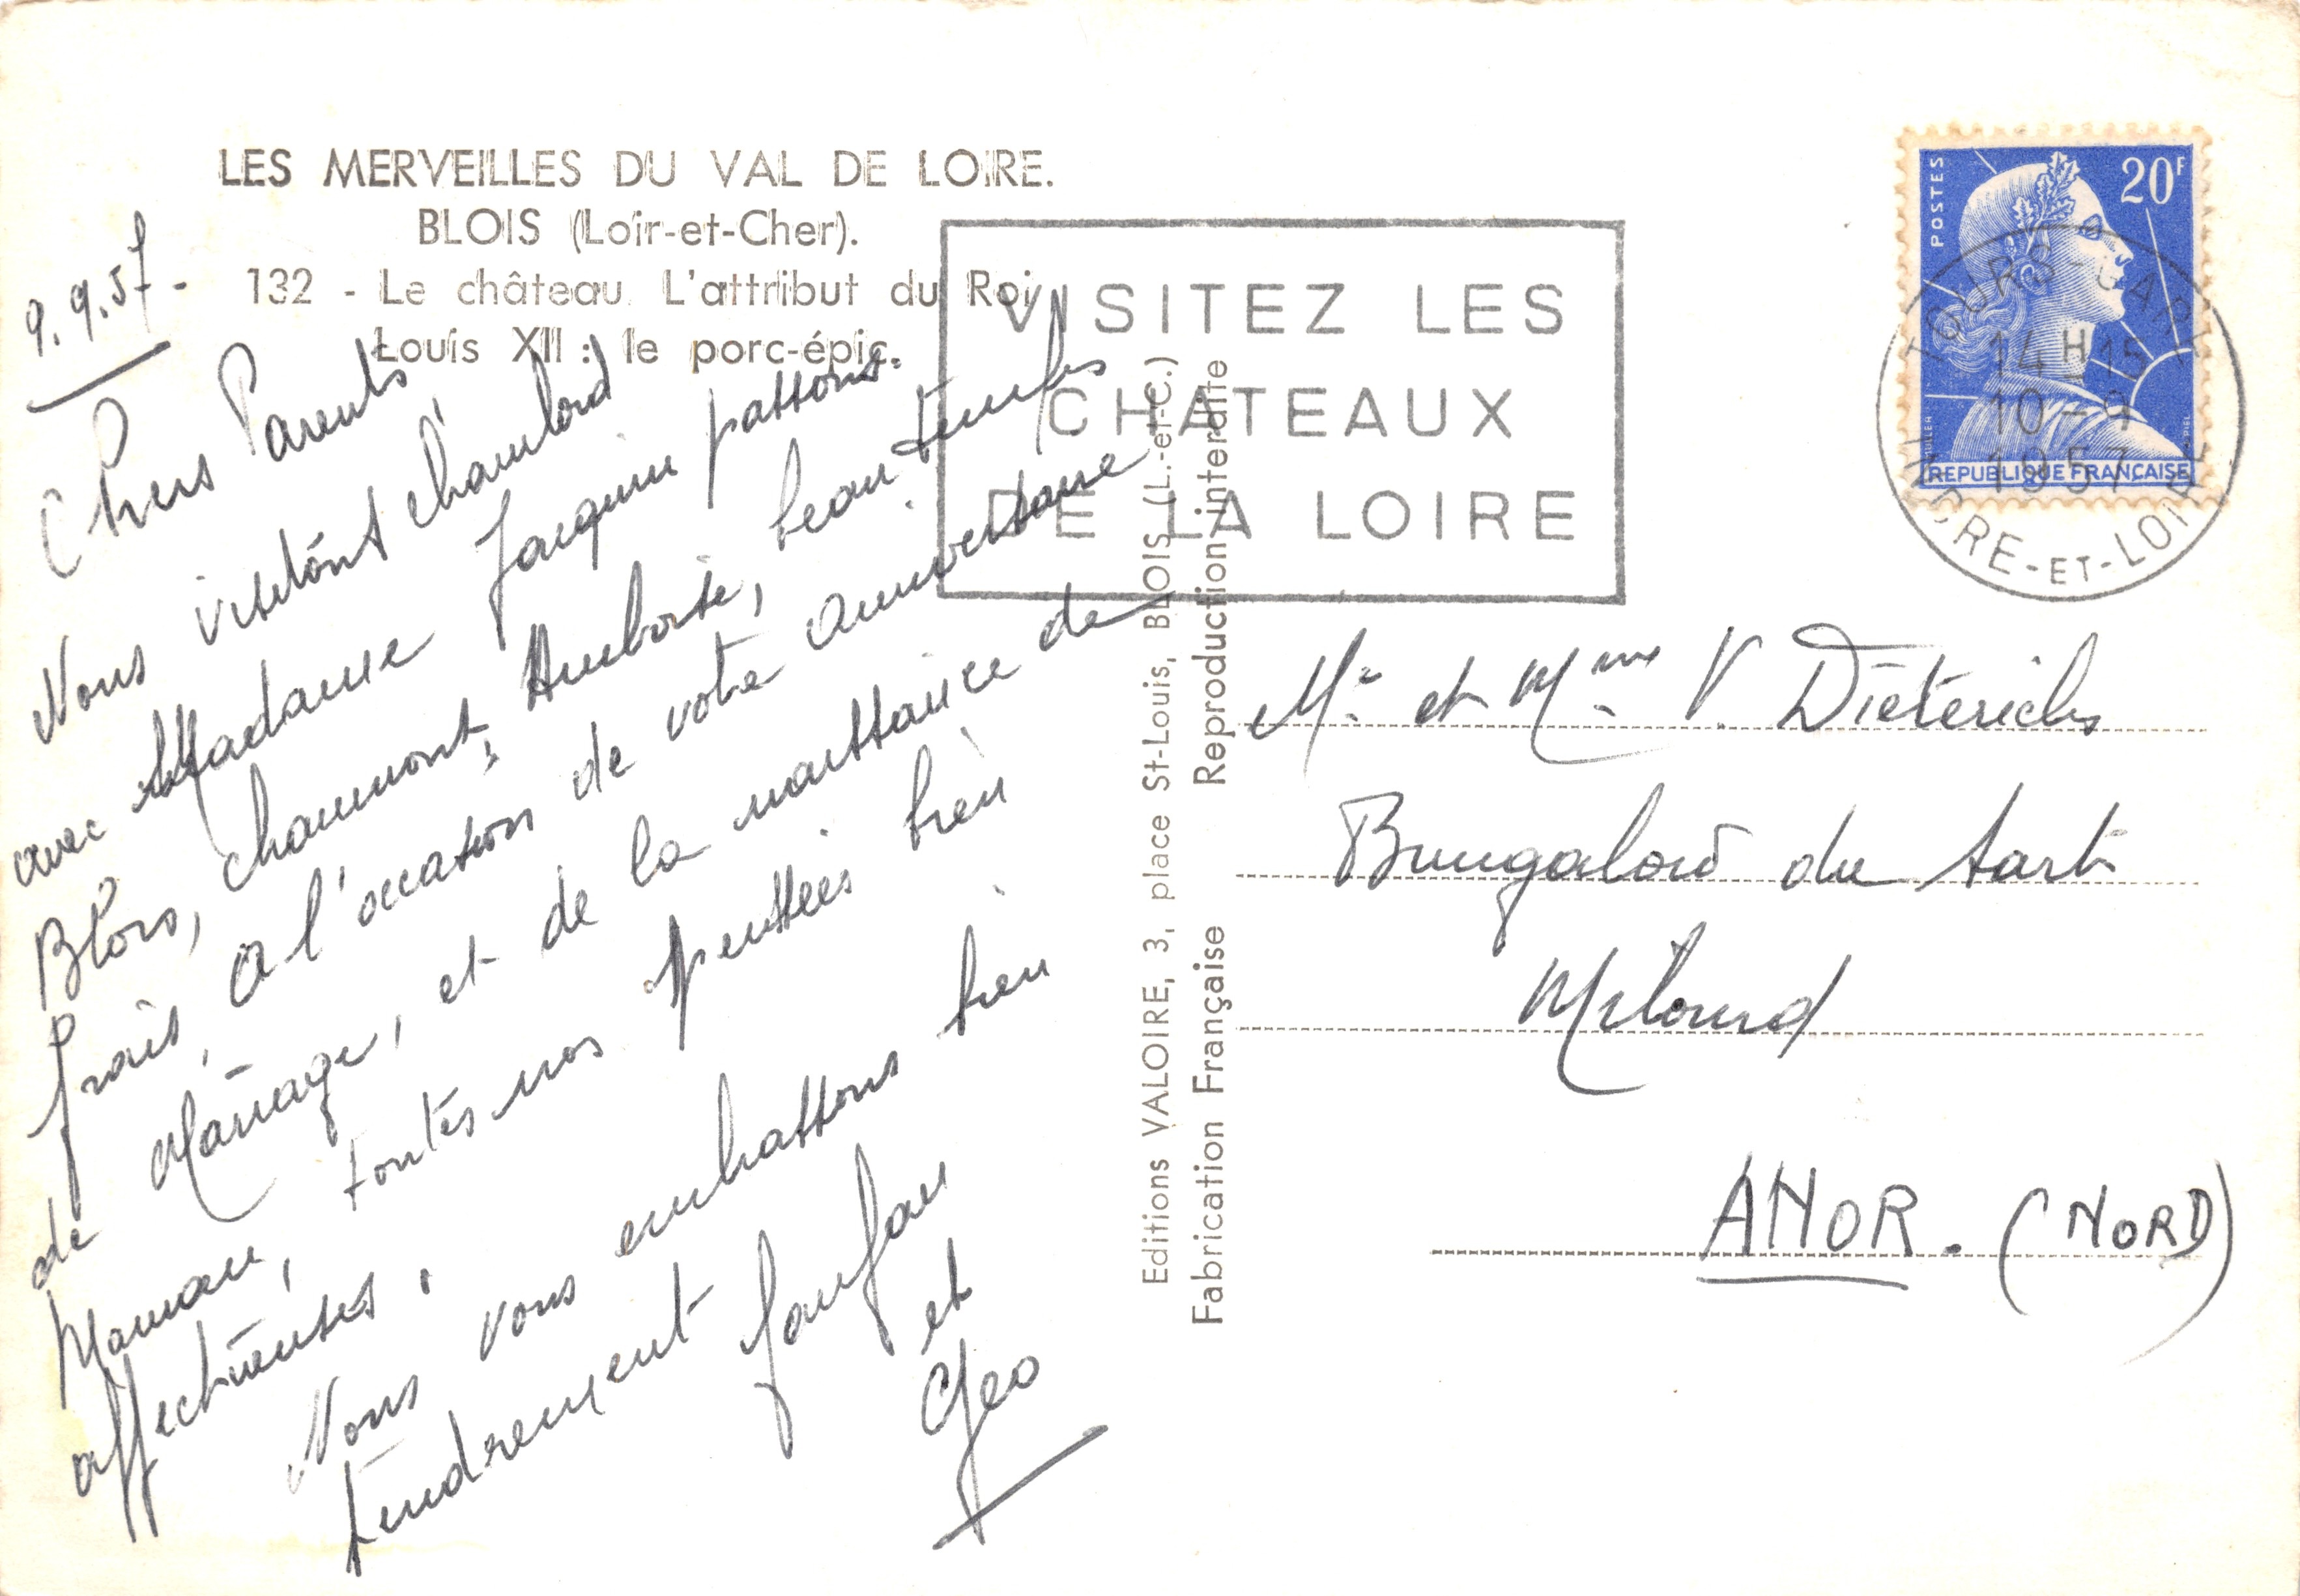 LES MERVEILLES DU VAL DE LOIRE.
BLOIS (Loir-et-Cher).
132 - Le château. L'attribut du Roi
Louis XII : le porc-épic.
9.9.57-
Chers Parents
Nous visitons chambord
avec Madame Jacquin passons
Blois, chaumont, Amboise, beau temps
frais, à l'occasion de votre anniversaire
de Mariage, et de la naissance de
Maman, toutes nos pensées bien
affectueuses.
Nous vous embrassons bien
tendrement fanfan
et
Géo
Editions VALOIRE, 3, place St-Louis, BLOIS (L.-et-C.)
Fabrication Française Reproduction interdite
VISITEZ LES
CHATEAUX
DE LA LOIRE
POSTES
20F
REPUBLIQUE FRANÇAISE
MULLER
TOURS-GARE
14H15
10-9
1957
INDRE-ET-LOIRE
Mr et Mme V. Dieterichs
Bungalow du Sart
Milourd
ANOR. (NORD)